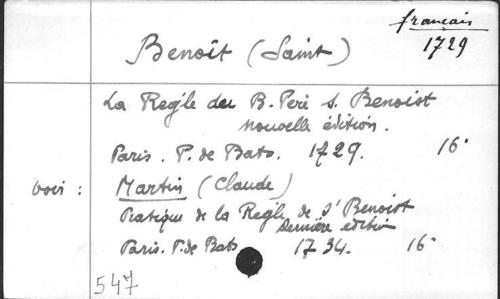 français
1729
Benoît (Saint)
La Regle du B. Pere S. Benoist
nouvelle édition.
Paris. P. de Bats. 1729. 16°
voir : Martin (Claude)
Pratique de la Regle de St Benoist
dernière édition
Paris. P. de Bats 1734. 16°
547